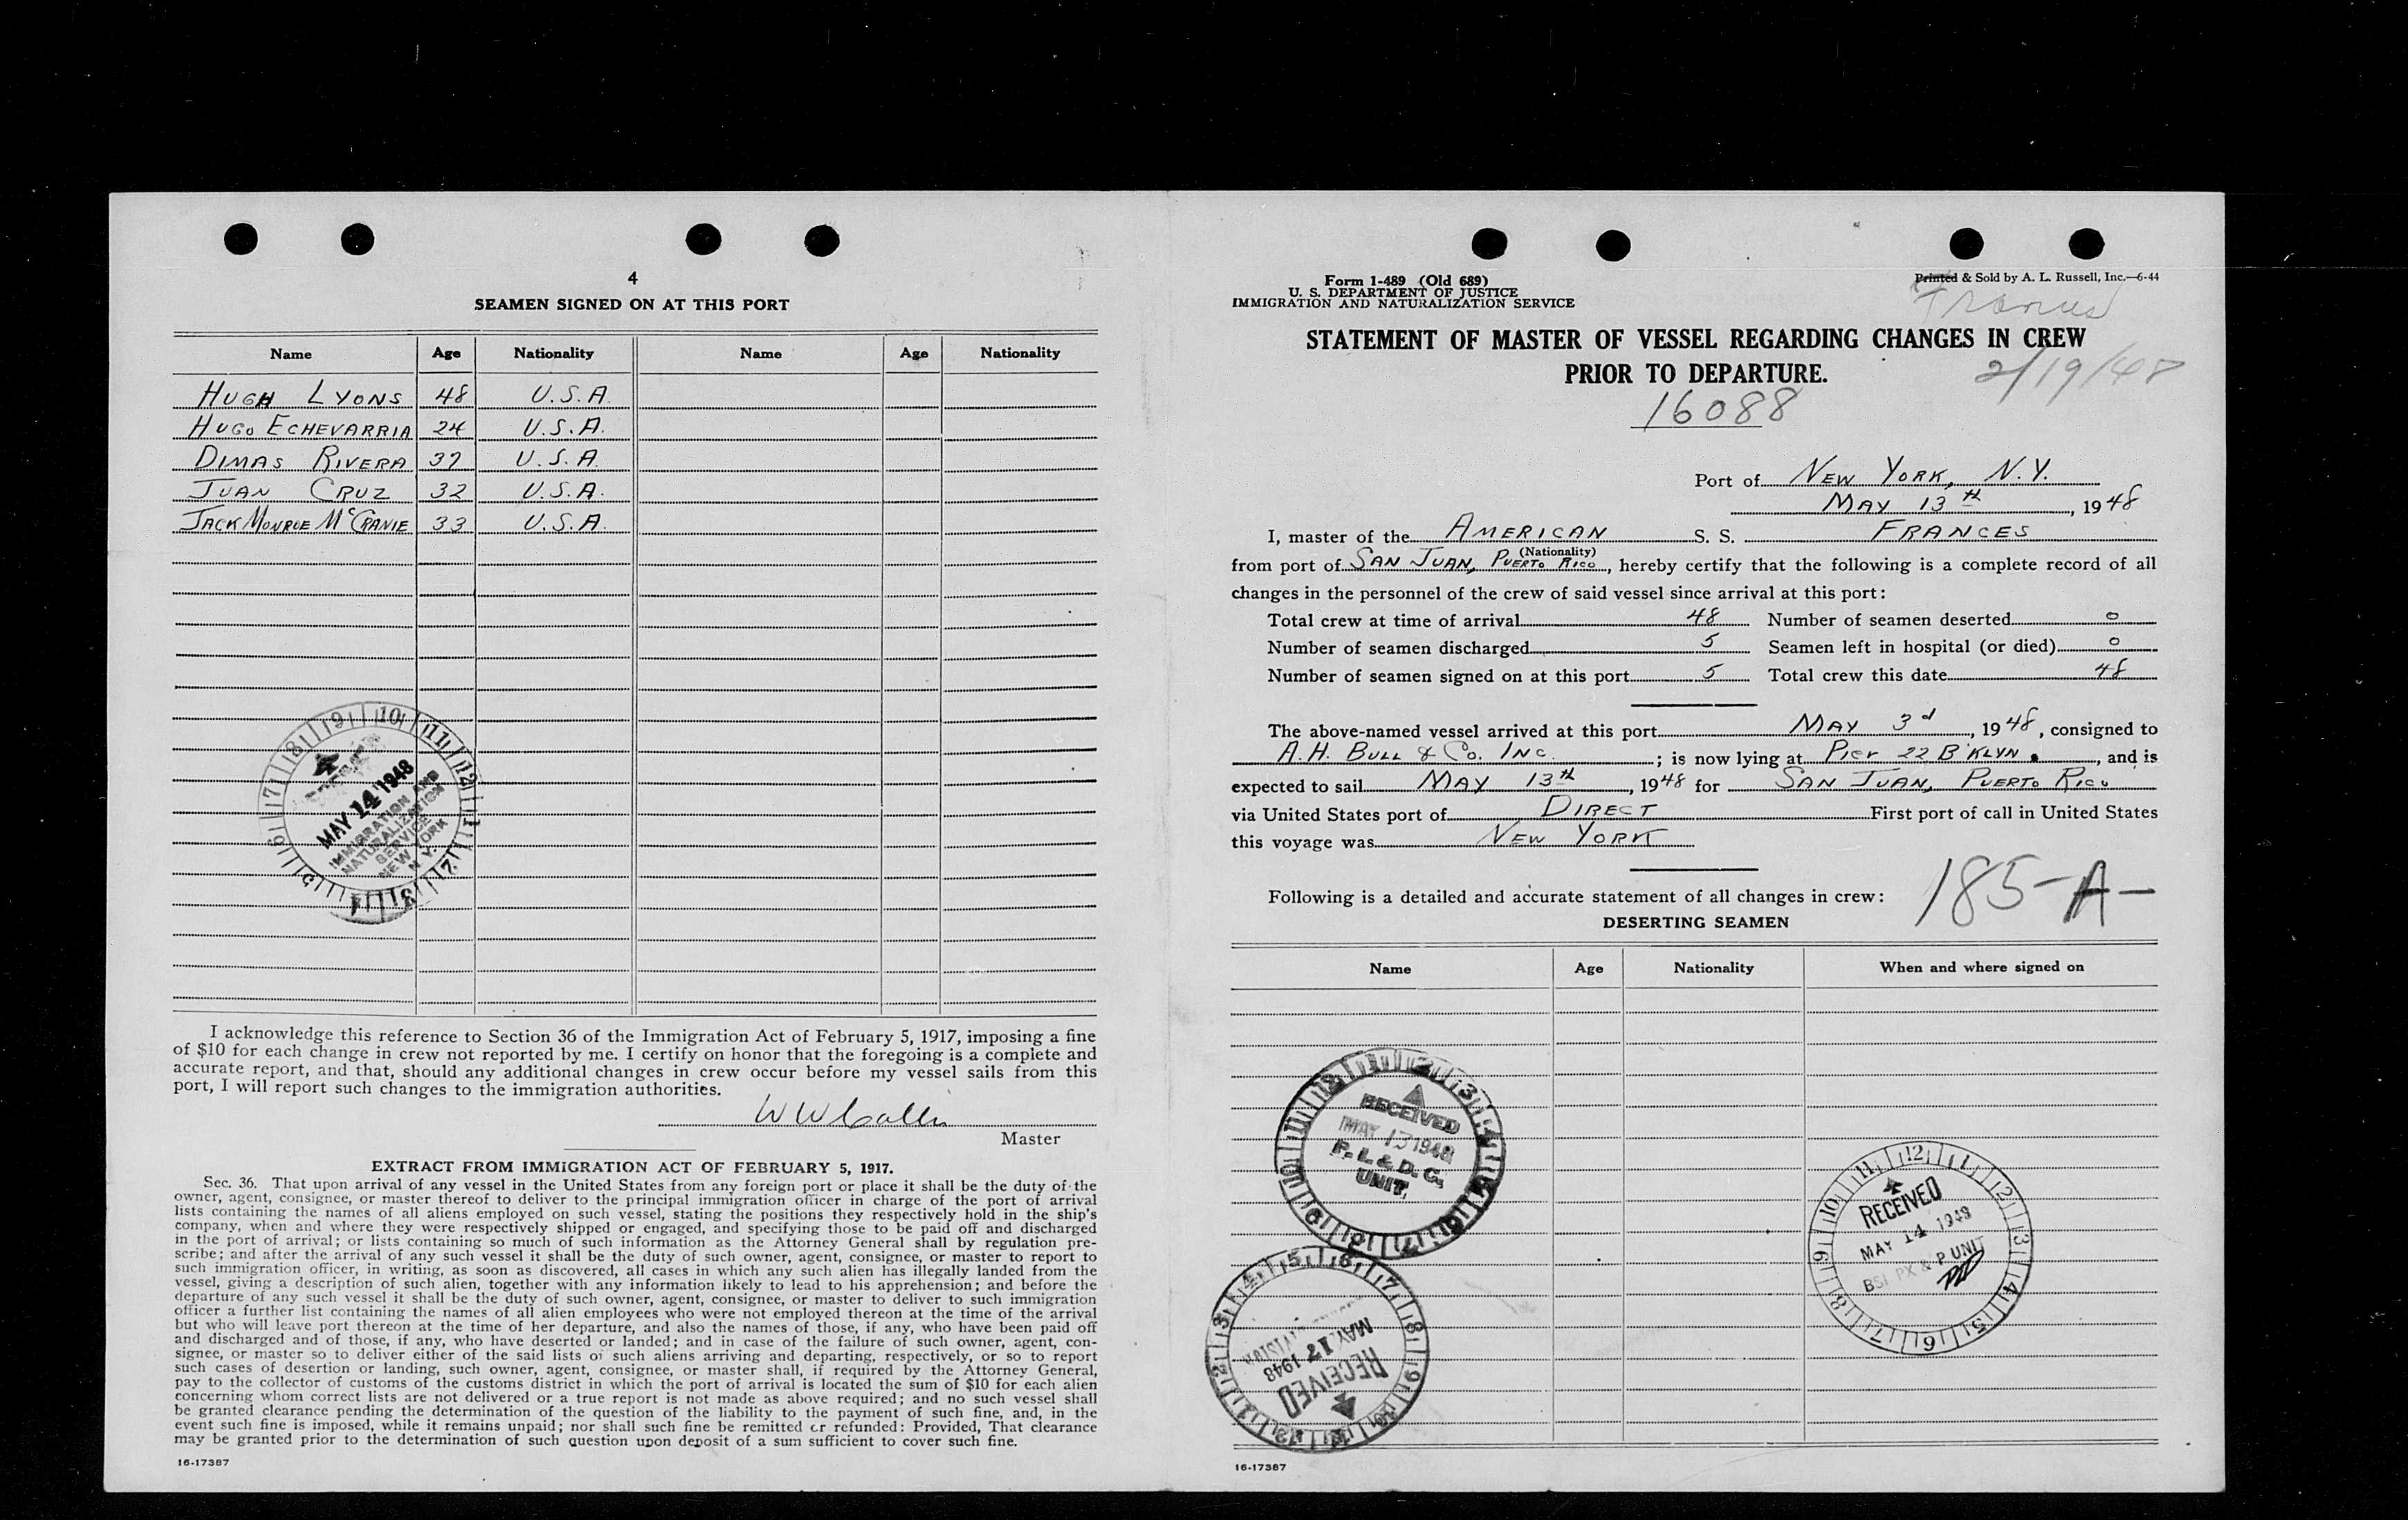 4
SEAMEN SIGNED ON AT THIS PORT
Name Age Nationality Name Age Nationality
HUGH LYONS 48 U.S.A.
HUGO ECHEVARRIA 24 U.S.A.
DIMAS RIVERA 37 U.S.A.
JUAN CRUZ 32 U.S.A.
JACK MONROE McCRANIE 33 U.S.A.
MAY 14 1948
IMMIGRATION AND
NATURALIZATION
SERVICE
NEW YORK
N. Y.
I acknowledge this reference to Section 36 of the Immigration Act of February 5, 1917, imposing a fine
of $10 for each change in crew not reported by me. I certify on honor that the foregoing is a complete and
accurate report, and that, should any additional changes in crew occur before my vessel sails from this
port, I will report such changes to the immigration authorities.
Master
EXTRACT FROM IMMIGRATION ACT OF FEBRUARY 5, 1917.
Sec. 36. That upon arrival of any vessel in the United States from any foreign port or place it shall be the duty of the
owner, agent, consignee, or master thereof to deliver to the principal immigration officer in charge of the port of arrival
lists containing the names of all aliens employed on such vessel, stating the positions they respectively hold in the ship's
company, when and where they were respectively shipped or engaged, and specifying those to be paid off and discharged
in the port of arrival; or lists containing so much of such information as the Attorney General shall by regulation pre-
scribe; and after the arrival of any such vessel it shall be the duty of such owner, agent, consignee, or master to report to
such immigration officer, in writing, as soon as discovered, all cases in which any such alien has illegally landed from the
vessel, giving a description of such alien, together with any information likely to lead to his apprehension; and before the
departure of any such vessel it shall be the duty of such owner, agent, consignee, or master to deliver to such immigration
officer a further list containing the names of all alien employees who were not employed thereon at the time of the arrival
but who will leave port thereon at the time of her departure, and also the names of those, if any, who have been paid off
and discharged and of those, if any, who have deserted or landed; and in case of the failure of such owner, agent, con-
signee, or master so to deliver either of the said lists of such aliens arriving and departing, respectively, or so to report
such cases of desertion or landing, such owner, agent, consignee, or master shall, if required by the Attorney General,
pay to the collector of customs of the customs district in which the port of arrival is located the sum of $10 for each alien
concerning whom correct lists are not delivered or a true report is not made as above required; and no such vessel shall
be granted clearance pending the determination of the question of the liability to the payment of such fine, and, in the
event such fine is imposed, while it remains unpaid; nor shall such fine be remitted or refunded: Provided, That clearance
may be granted prior to the determination of such question upon deposit of a sum sufficient to cover such fine.
16-17387
Form 1-489 (Old 689)
U. S. DEPARTMENT OF JUSTICE
IMMIGRATION AND NATURALIZATION SERVICE
Printed & Sold by A. L. Russell, Inc.—6-44
STATEMENT OF MASTER OF VESSEL REGARDING CHANGES IN CREW
PRIOR TO DEPARTURE.
2/19/48
16088
Port of NEW YORK, N.Y.
MAY 13th, 1948
I, master of the AMERICAN S. S. FRANCES
(Nationality)
from port of SAN JUAN, PUERTO RICO, hereby certify that the following is a complete record of all
changes in the personnel of the crew of said vessel since arrival at this port:
Total crew at time of arrival 48 Number of seamen deserted 0
Number of seamen discharged 5 Seamen left in hospital (or died) 0
Number of seamen signed on at this port 5 Total crew this date 48
The above-named vessel arrived at this port MAY 3d, 1948, consigned to
A.H. BULL & Co. INC.; is now lying at Pier 22 B'KLYN., and is
expected to sail MAY 13th, 1948 for SAN JUAN, PUERTO RICO
via United States port of DIRECT First port of call in United States
this voyage was NEW YORK
185-A-
Following is a detailed and accurate statement of all changes in crew:
DESERTING SEAMEN
Name Age Nationality When and where signed on
RECEIVED
MAY 13 1948
P. L. & D. C.
UNIT.
RECEIVED
MAY 14 1948
BSI PX & P UNIT
RECEIVED
MAY 17 1948
DIVISION
16-17387